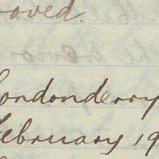 oved.
Londonderry
February 19